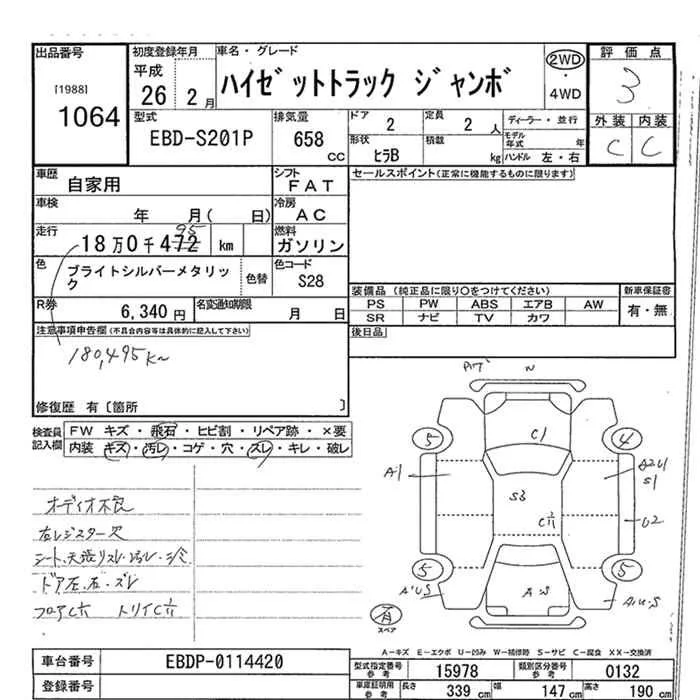 出品番号 初度登録年月 車名・グレード 評価点
[1988] 平成 ハイゼットトラック ジャンボ 2WD ・ 4WD 3
1064 26 2月
型式 排気量 ドア 2 定員 2人 ディーラー・並行 外装 内装
EBD-S201P 658 CC 形状 ヒラB 積載 kg モデル年式 年 ハンドル 左・右 C C
車歴 自家用 シフト FAT セールスポイント(正常に機能するものに限ります)
車検 年 月( 日) 冷房 AC
走行 18万0千472 95 km 燃料 ガソリン
色 ブライトシルバーメタリック 色替 色コード S28
装備品 (純正品に限り○をつけてください) 新車保証書
R券 6,340円 名変通知期限 月 日 PS PW ABS エアB AW 有・無
SR ナビ TV カワ
注意事項申告欄(不具合内容等は具体的に記入して下さい) 後日品
180,495km
修復歴 有〔箇所 〕
検査員記入欄 FW キズ・飛石・ヒビ割・リペア跡・×要
内装 キズ・汚レ・コゲ・穴・スレ・キレ・破レ
オーディオ不良
右レジスター欠
シート、天張リスレ・汚レ
ドア左、右・ズレ
フロアC六 トリイC六
N
C1
5 4
A1 A2U
S1
S3
C六 U2
5 5
A'US AW A1U.S
スペア
A-キズ E-エクボ U-凹み W-補修跡 S-サビ C-腐食 XX-交換済
車台番号 EBDP-0114420 型式指定番号 参考 15978 類別区分番号 参考 0132
登録番号 車庫証明用 参考 長さ 339 cm 幅 147 cm 高さ 190 cm